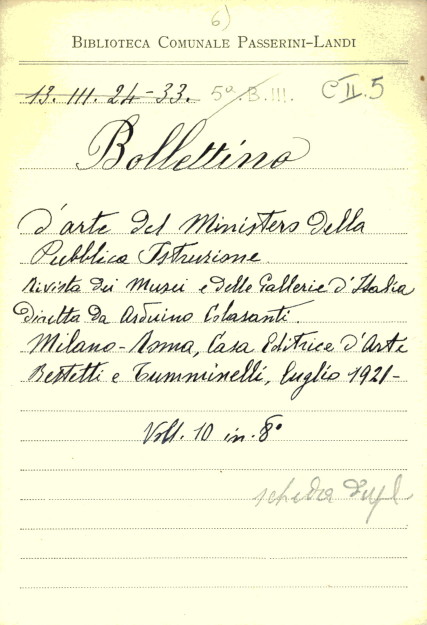 6)
BIBLIOTECA COMUNALE PASSERINI-LANDI
13. III. 24-33. 5ª.B.III. C II.5
Bollettino
d'arte del Ministero della
Pubblica Istruzione.
Rivista dei Musei e delle Gallerie d'Italia
Diretta da Arduino Colasanti.
Milano-Roma, Casa Editrice d'Arte
Bestetti e Tumminelli, luglio 1921-
Voll. 10 in. 8°
scheda dupl